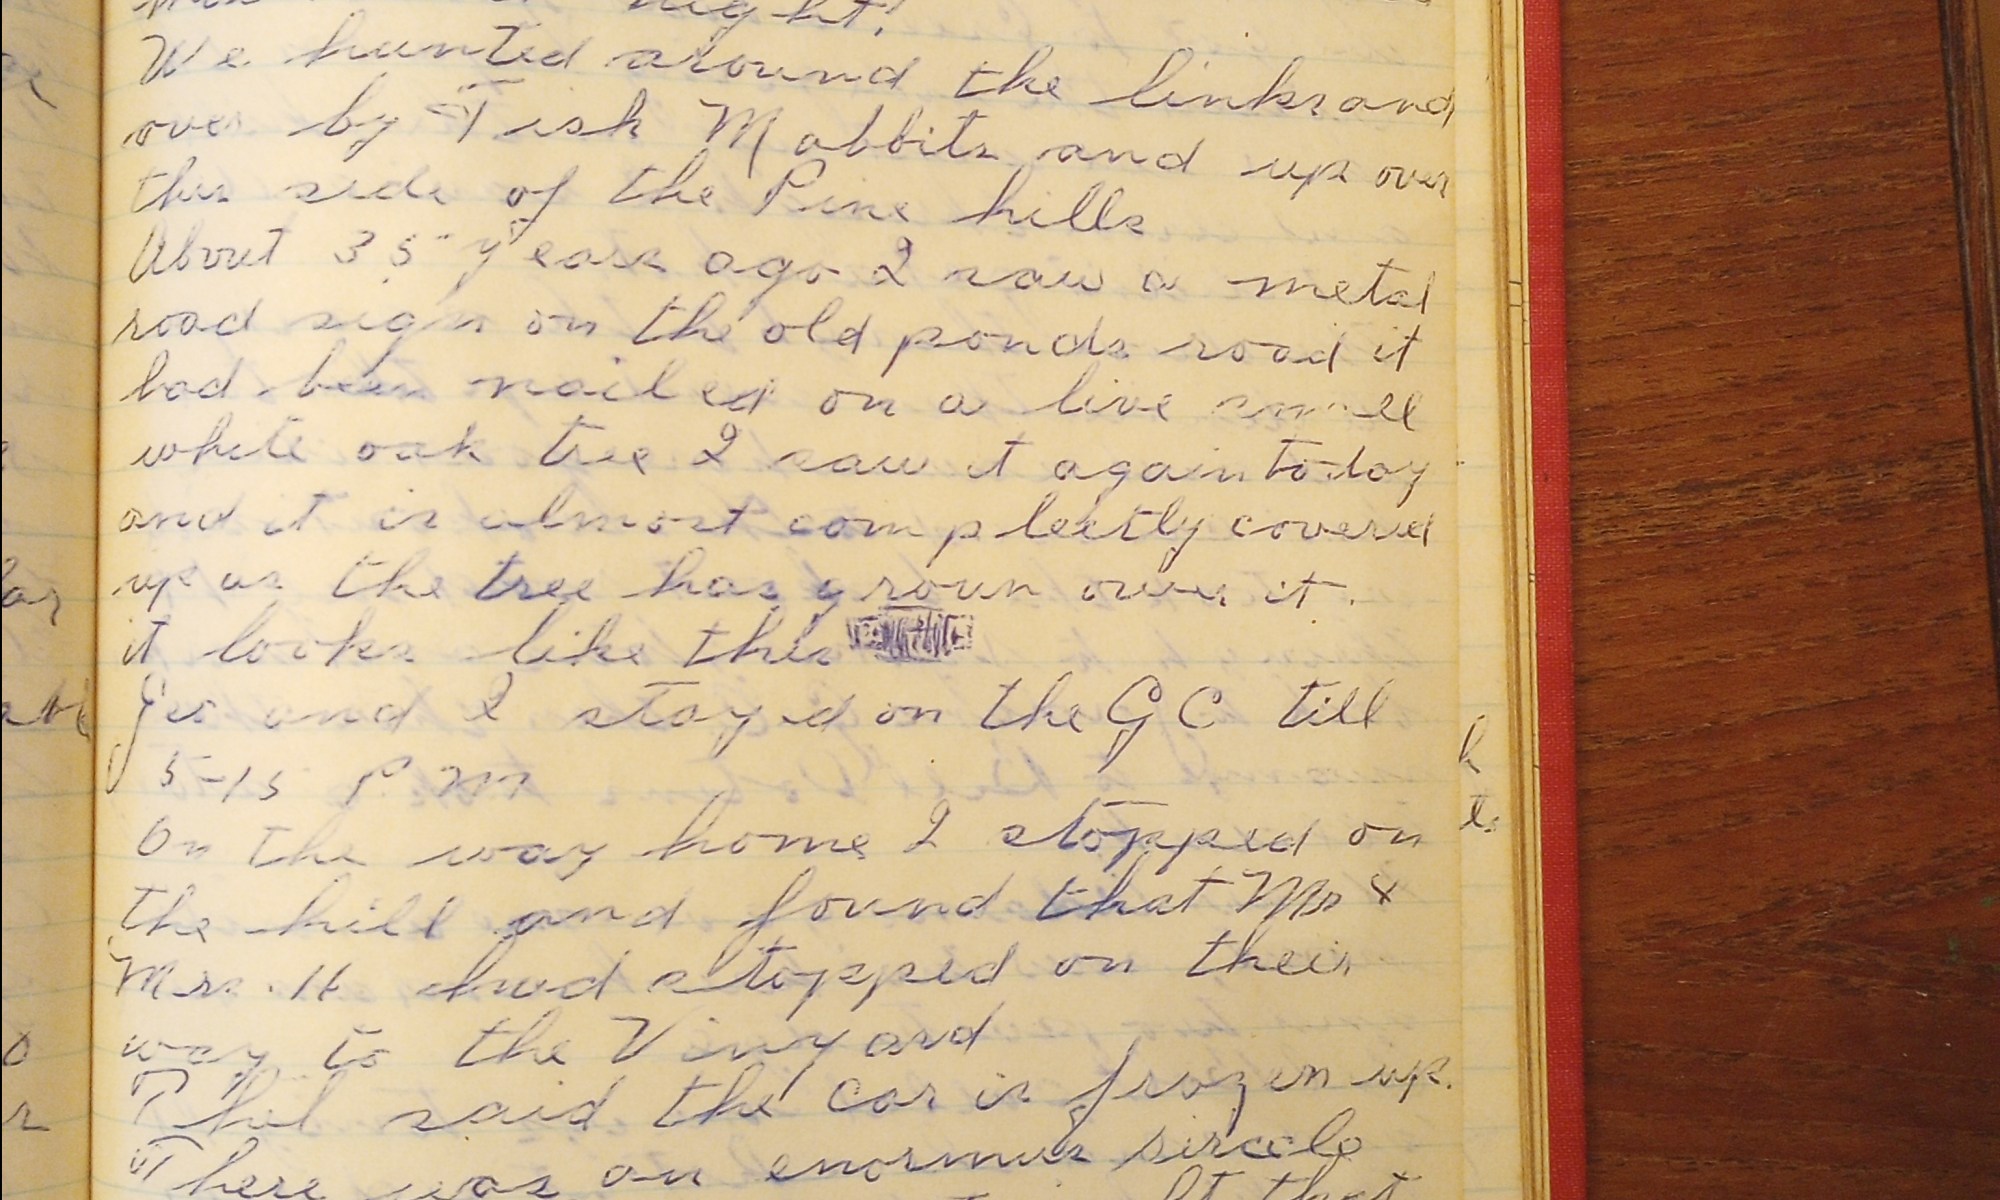 night!
We hunted around the links and
over by Tish Mabbits and up over
this side of the Pine hills
About 35 years ago I saw a metal
road sign on the old ponds road it
had been nailed on a live small
white oak tree I saw it again today
and it is almost compleetly covered
up as the tree has groun over it.
it looks like this
Jes and I stayed on the GC till
5-15 P M
On the way home I stopped on
the hill and found that Mr &
Mrs. H had stopped on their
way to the Vinyard
Phel said the car is frozen up.
There was an enormus sircele
It that